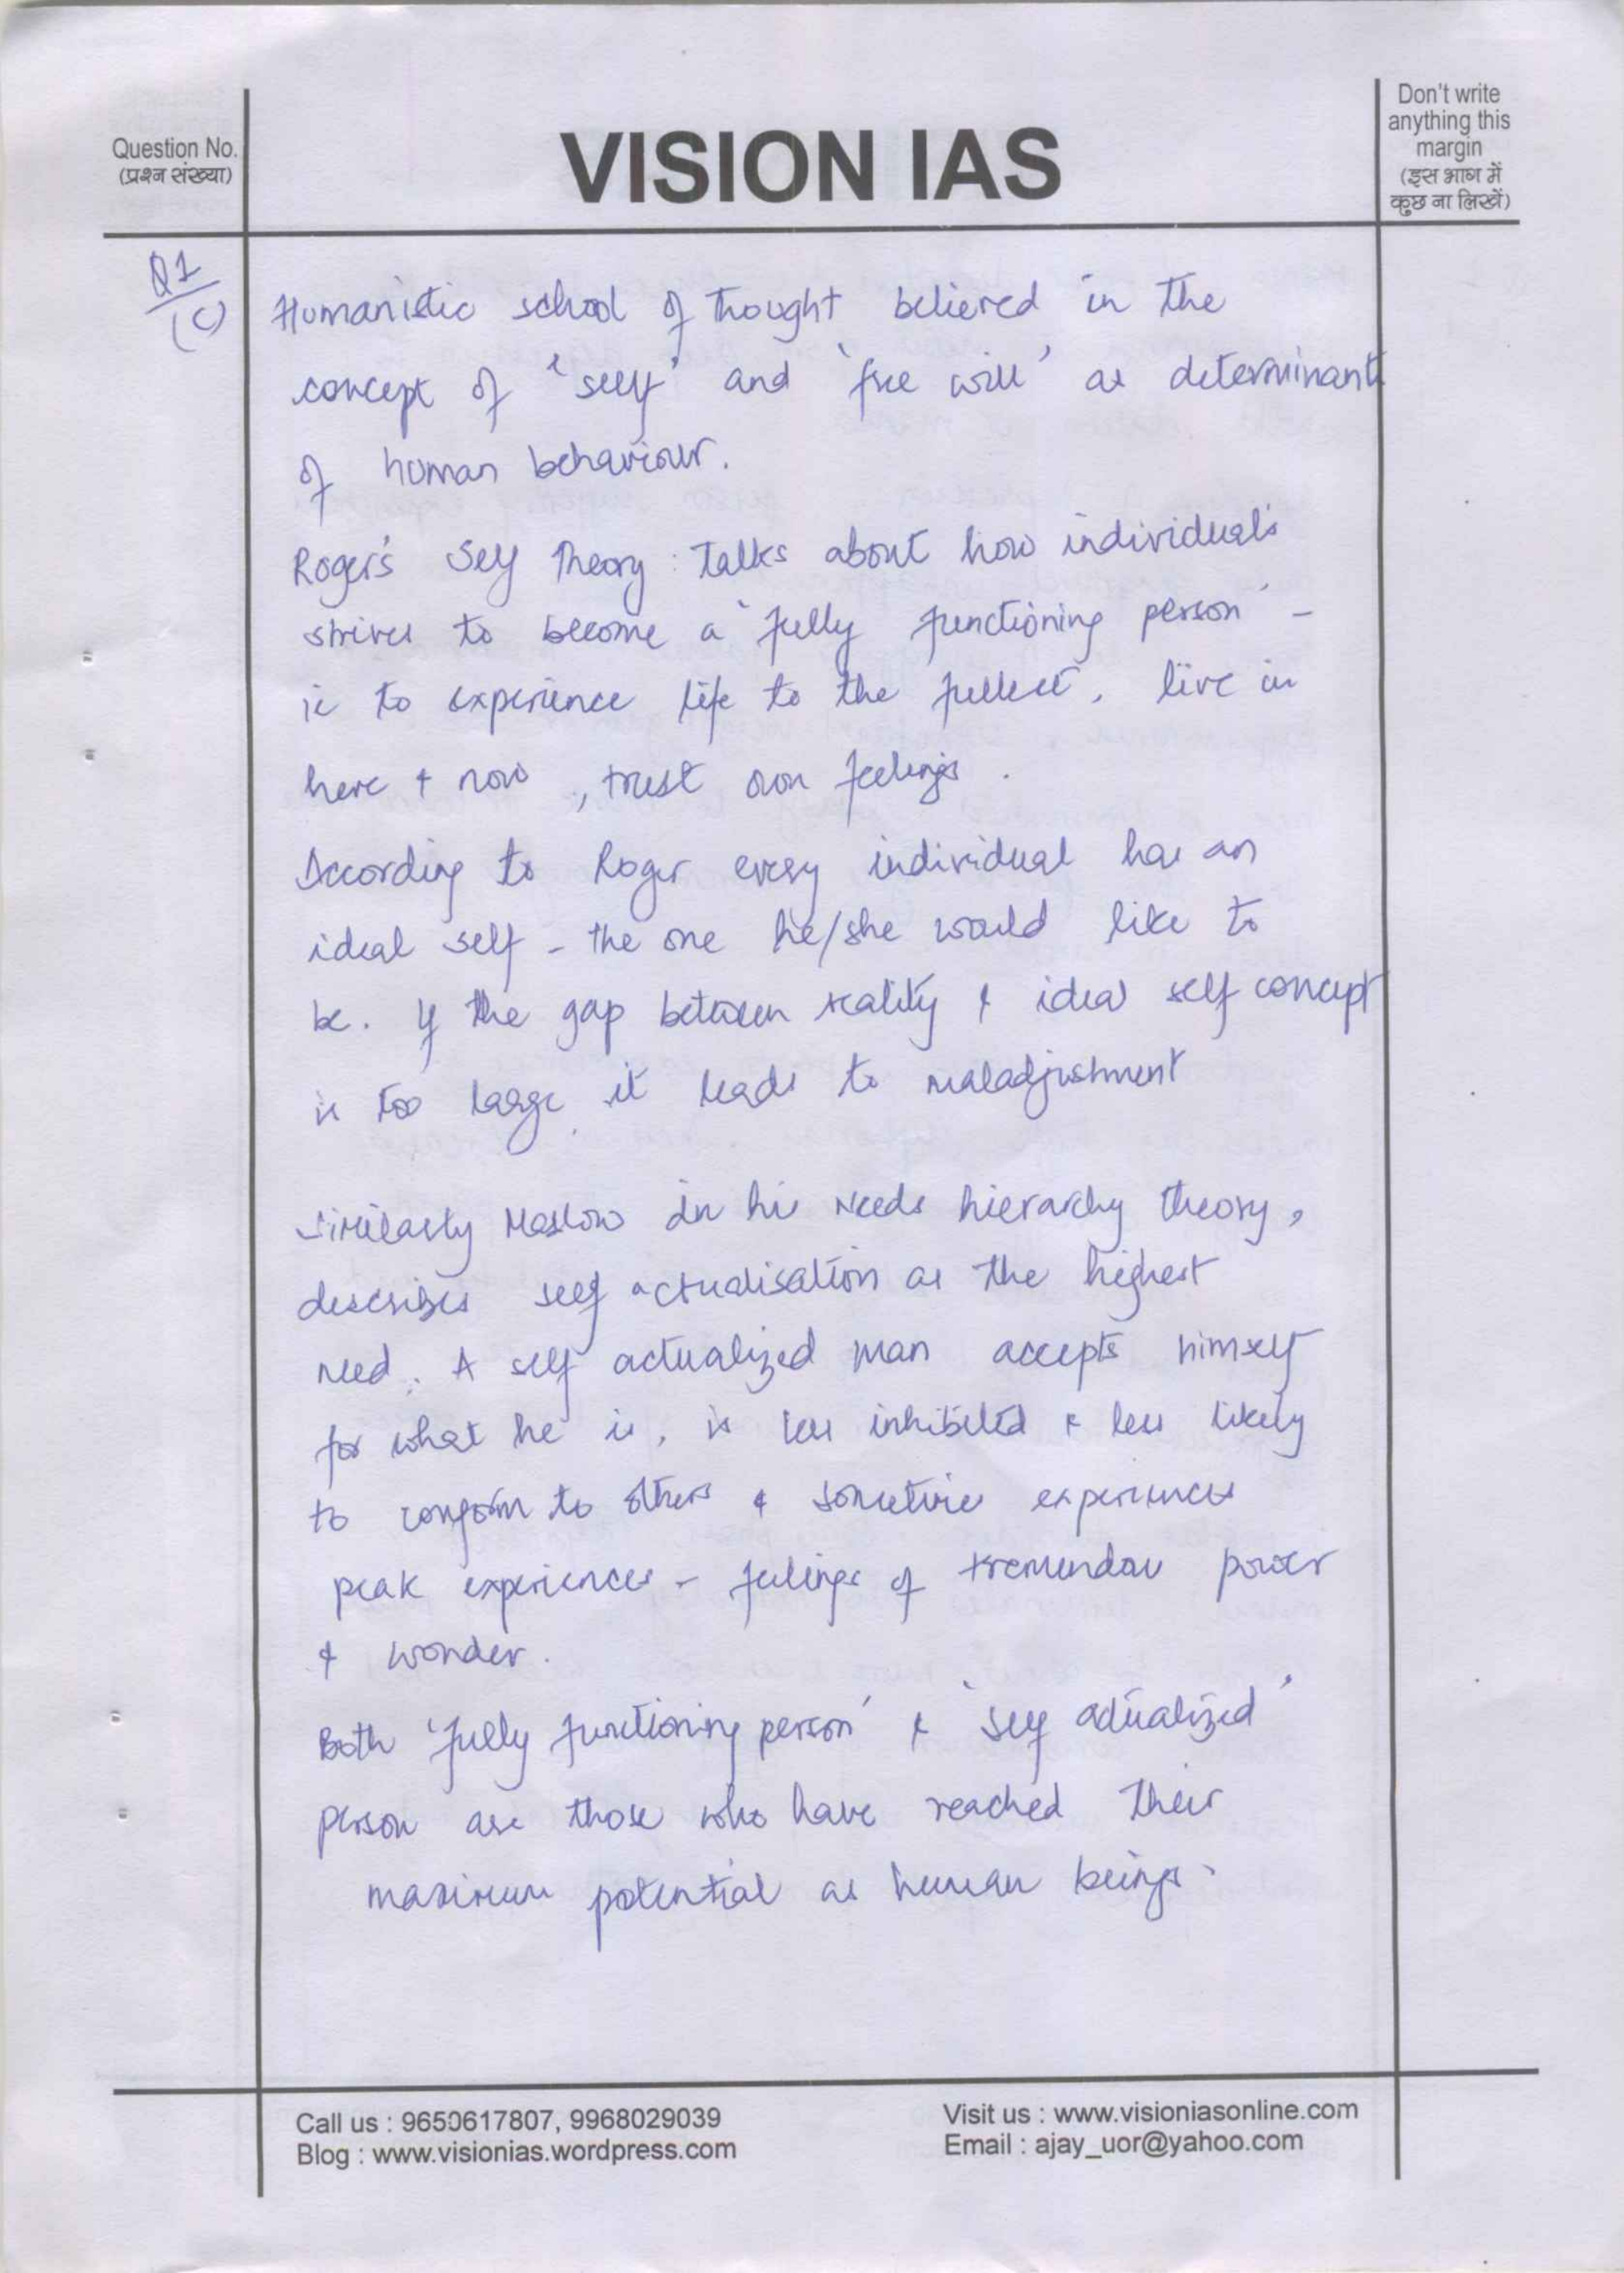 Question No.
(प्रश्न संख्या)
VISION IAS
Don't write
anything this
margin
(इस भाग में
कुछ ना लिखें)
Q1
(C)
Humanistic school of thought believed in the
concept of 'self' and 'free will' as determinants
of human behaviour.
Roger's Self Theory : Talks about how individual's
strives to become a 'fully functioning person' -
ie to experience life to the fullest, live in
here & now, trust own feelings.
According to Roger every individual has an
ideal self - the one he/she would like to
be. If the gap between reality & ideal self concept
is too large, it leads to maladjustment
Similarly Maslow in his Needs hierarchy theory,
describes self actualisation as the highest
need. A self actualized man accepts himself
for what he is, is less inhibited & less likely
to conform to others & sometime experiences
peak experiences - feelings of tremendous power
& wonder.
Both 'fully functioning person' & 'self actualized'
person are those who have reached their
maximum potential as human beings.
Call us : 9650617807, 9968029039
Blog : www.visionias.wordpress.com
Visit us : www.visioniasonline.com
Email : ajay_uor@yahoo.com